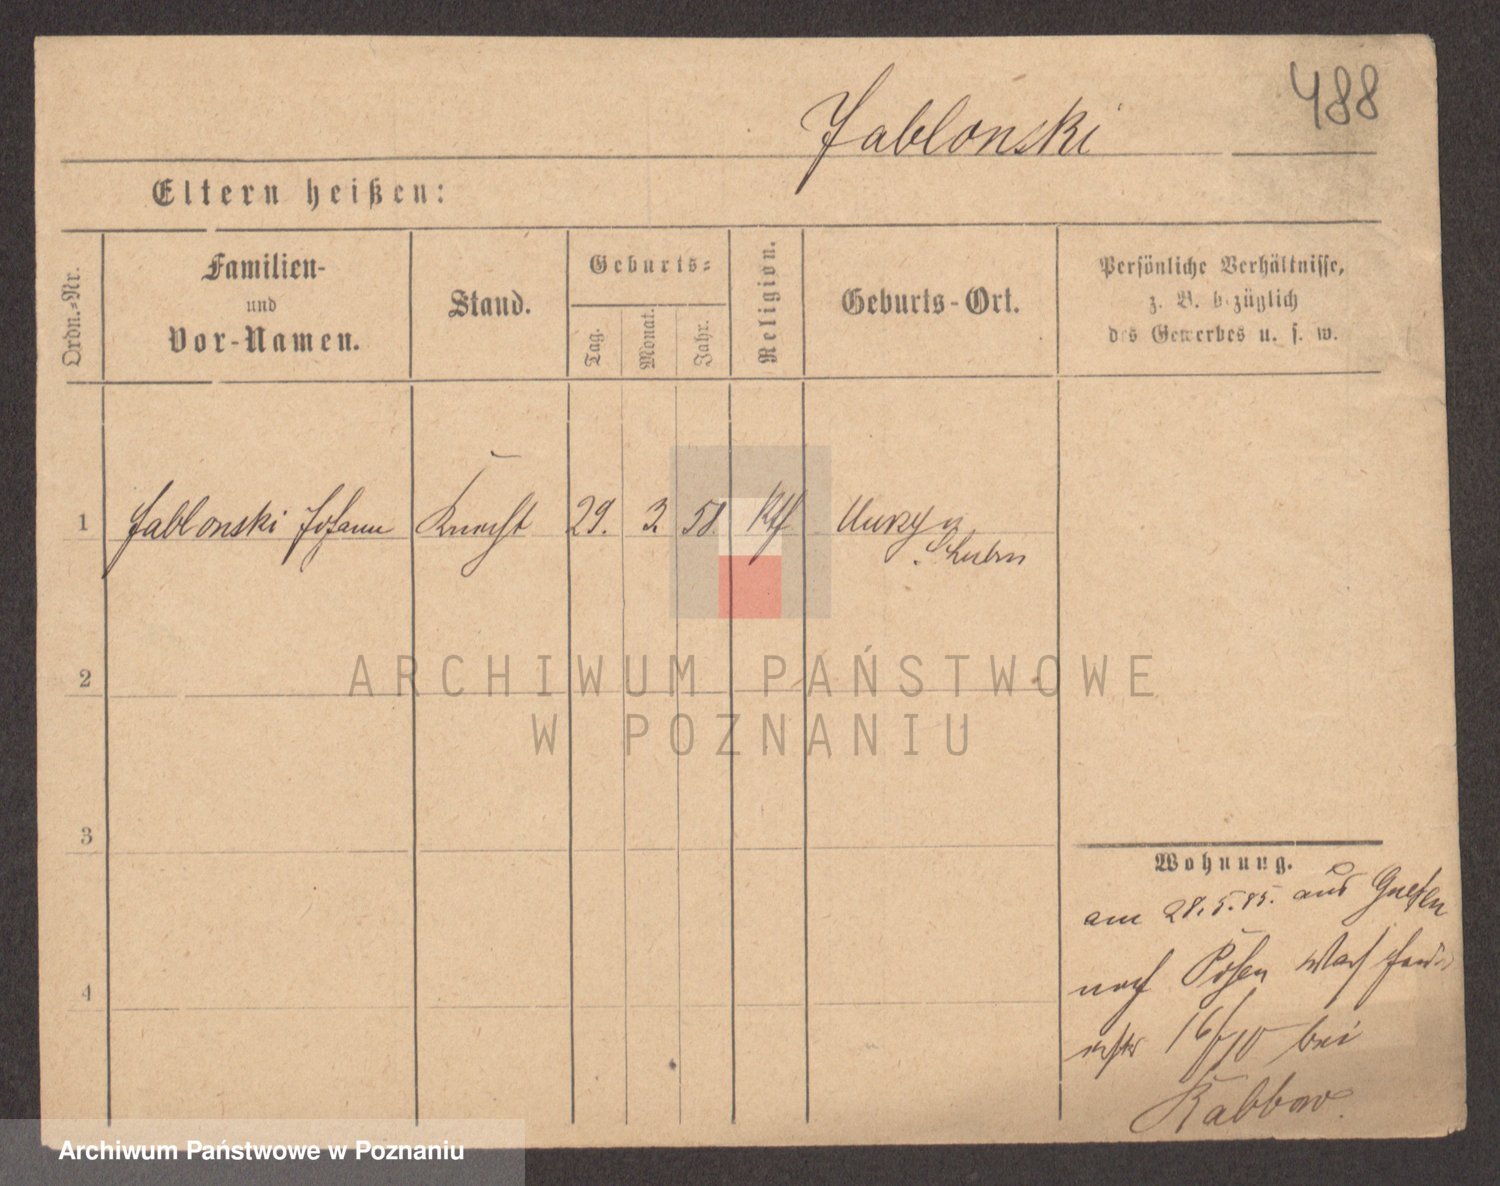 488
Jabloński
Eltern heißen:
Ordn.-Nr.
Familien-
und
Vor-Namen.
Stand.
Geburts-
Tag.
Monat.
Jahr.
Religion.
Geburts-Ort.
Persönliche Verhältnisse,
z. B. bezüglich
des Gewerbes u. s. w.
1
Jablonski Johann
Knecht
29.
3.
58
Kth
2
3
4
ARCHIWUM PAŃSTWOWE
W POZNANIU
Wohnung.
am 28.5.85. aus Gnesen
nach Posen
16/ 10 bei
Rabbow.
Archiwum Państwowe w Poznaniu